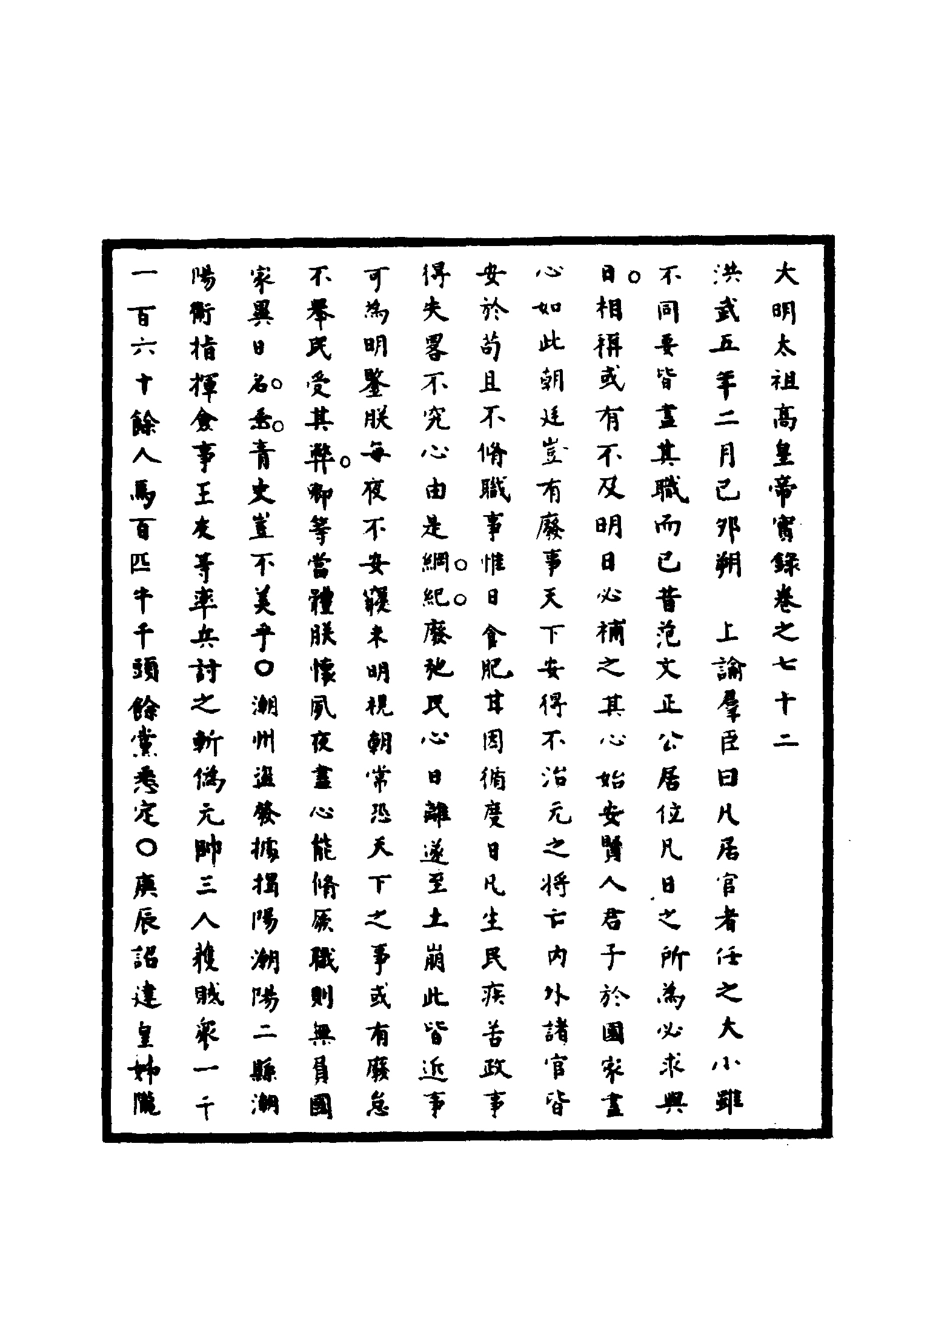 大明太祖高皇帝實錄卷之七十二
洪武五年二月己夘朔　上諭羣臣曰凡居官者任之大小雖
不同要皆盡其職而已昔范文正公居位凡日之所為必求與
日相稱或有不及明日必補之其心始安賢人君子於國家盡
心如此朝廷豈有廢事天下安得不治元之將亡內外諸官皆
安於苟且不脩職事惟日食肥甘因循度日凡生民疾苦政事
得失畧不究心由是綱紀廢弛民心日離遂至土崩此皆近事
可為明鑒朕每夜不安寢未明視朝常恐天下之事或有廢怠
不舉民受其弊卿等當體朕懷夙夜盡心能脩厥職則無負國
家異日名垂青史豈不美乎○潮州盜發掠揭陽潮陽二縣潮
陽衛指揮僉事王友等率兵討之斬偽元帥三人獲賊眾一千
一百六十餘人馬百匹牛千頭餘黨悉定○庚辰詔建皇姊隴